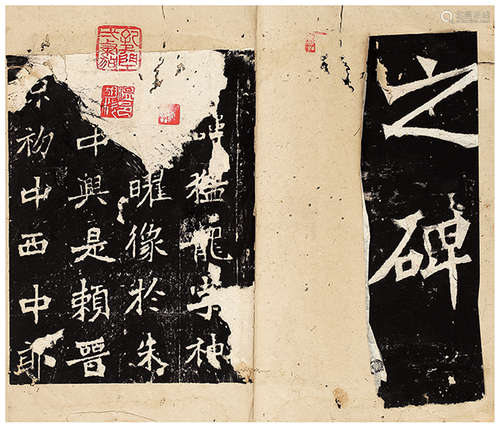 之碑
猛龍字神
曜像於朱
中興是賴晉
初中西中郎